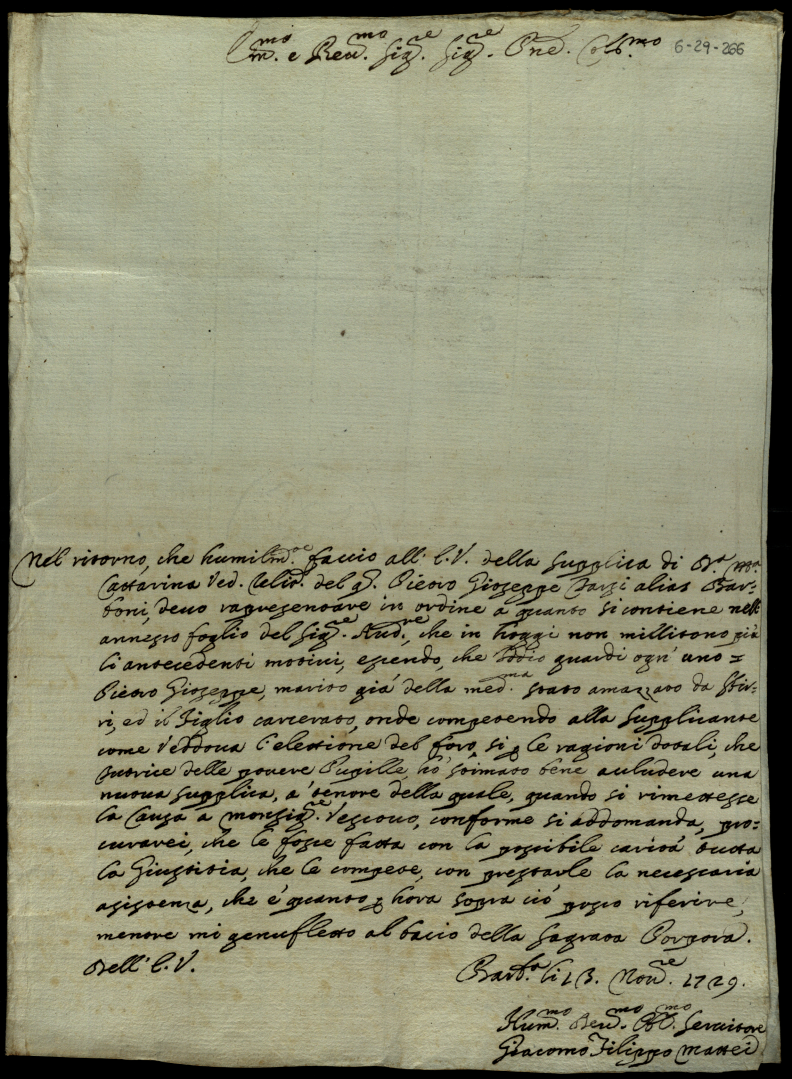 Em.mo e Reu.mo Sig.re Sig.re Pne. Col.mo 6-29-266
Nel ritorno, che humilm.te faccio all' E.V. della supplica di D.a M.a
Cattarina Ved. Relit. del q. Pietro Gioseppe alias Bar=
toni, deuo rapresentare in ordine a quanto si contiene nell'
annesso foglio del Sig.re Aud.re, che in hoggi non millitono più
li antecedenti motiui, essendo, che Iddio guardi ogn' uno=
Pietro Gioseppe, marito già della med.ma stato amazzato da Sbir=
ri, ed il Figlio carcerato, onde competendo alla supplicante
come Veddoua l'elettione del foro, si p le ragioni dotali, che
tutrice delle pouere Pupille, hò stimato bene acludere una
nuoua supplica, a' tenore della quale, quando si rimettesse
la Causa a Monsig.re Vescouo, conforme si addomanda, pro=
curarei, che le fosse fatta con la possibile carità tutta
la Giustitia, che le compete, con prestarle la necessaria
asistenza, che è quanto p hora sopra ciò posso riferire,
mentre mi genufletto al bacio della Sagrata Porpora.
Dell' E.V.
Barb.a li 13. Nou.re 1729.
Hum.mo Deu.mo Obl.mo Seruitore
Giacomo Filippo Mattei